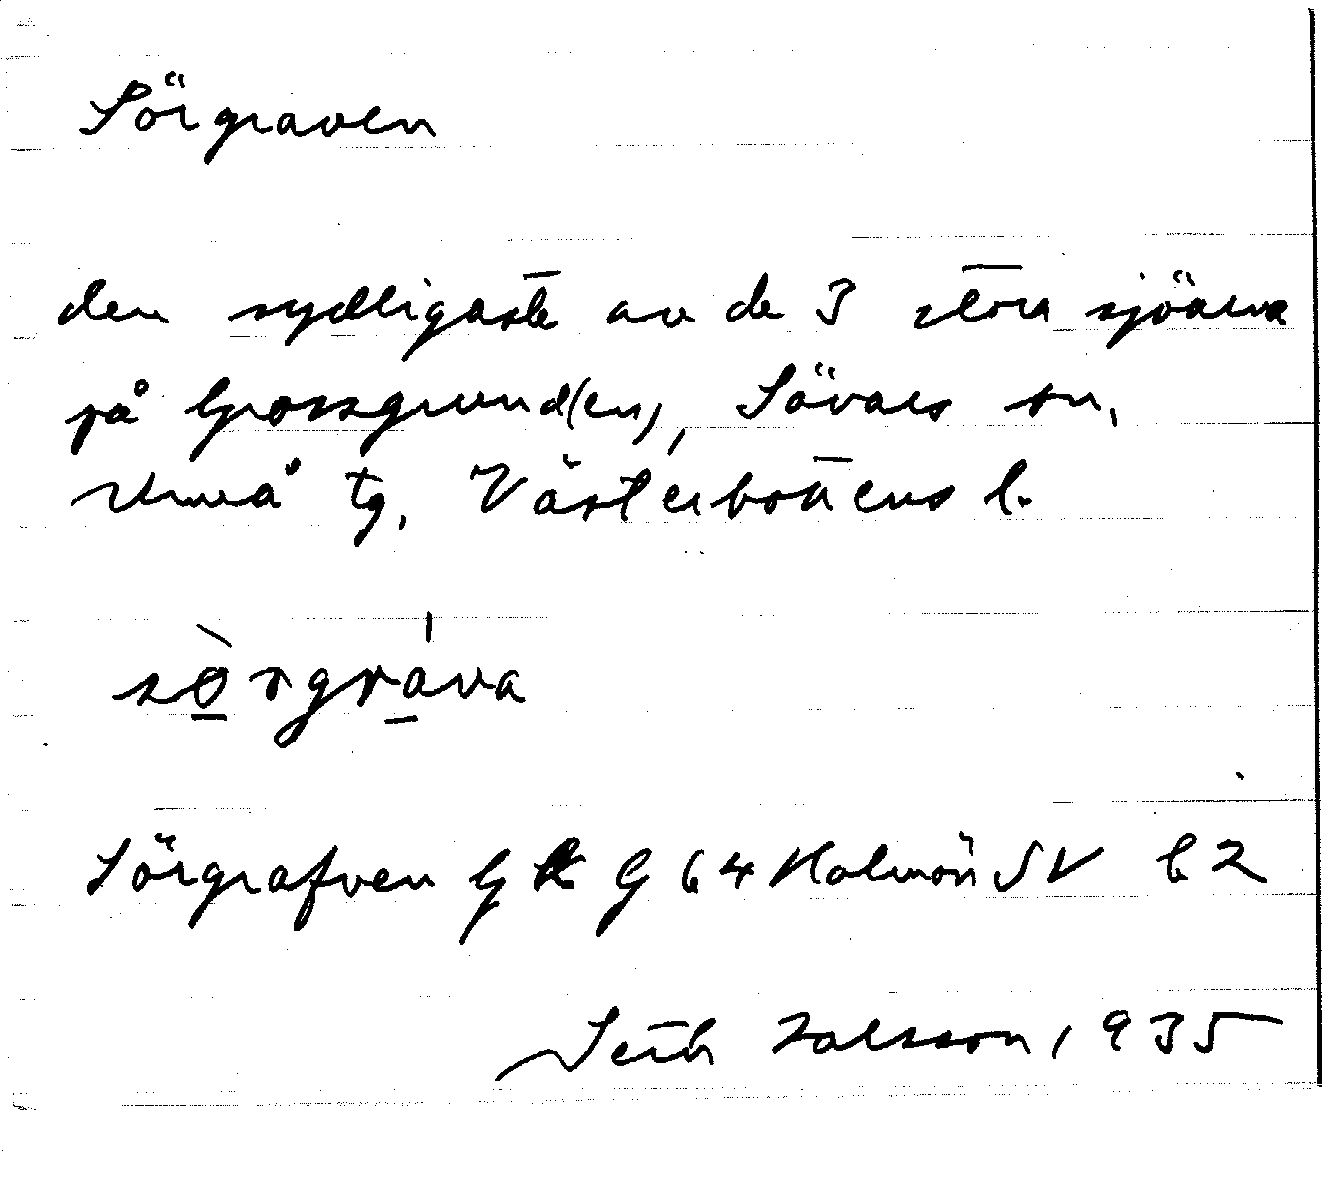 Sörgraven
den sydligaste av de 3 stora sjöarna
på Grossgrund(en), Sävars sn,
Umeå tg, Västerbottens l.
sò̱rgrá̱va
Sörgrafven GK G 64 Holmön SV b2
1935